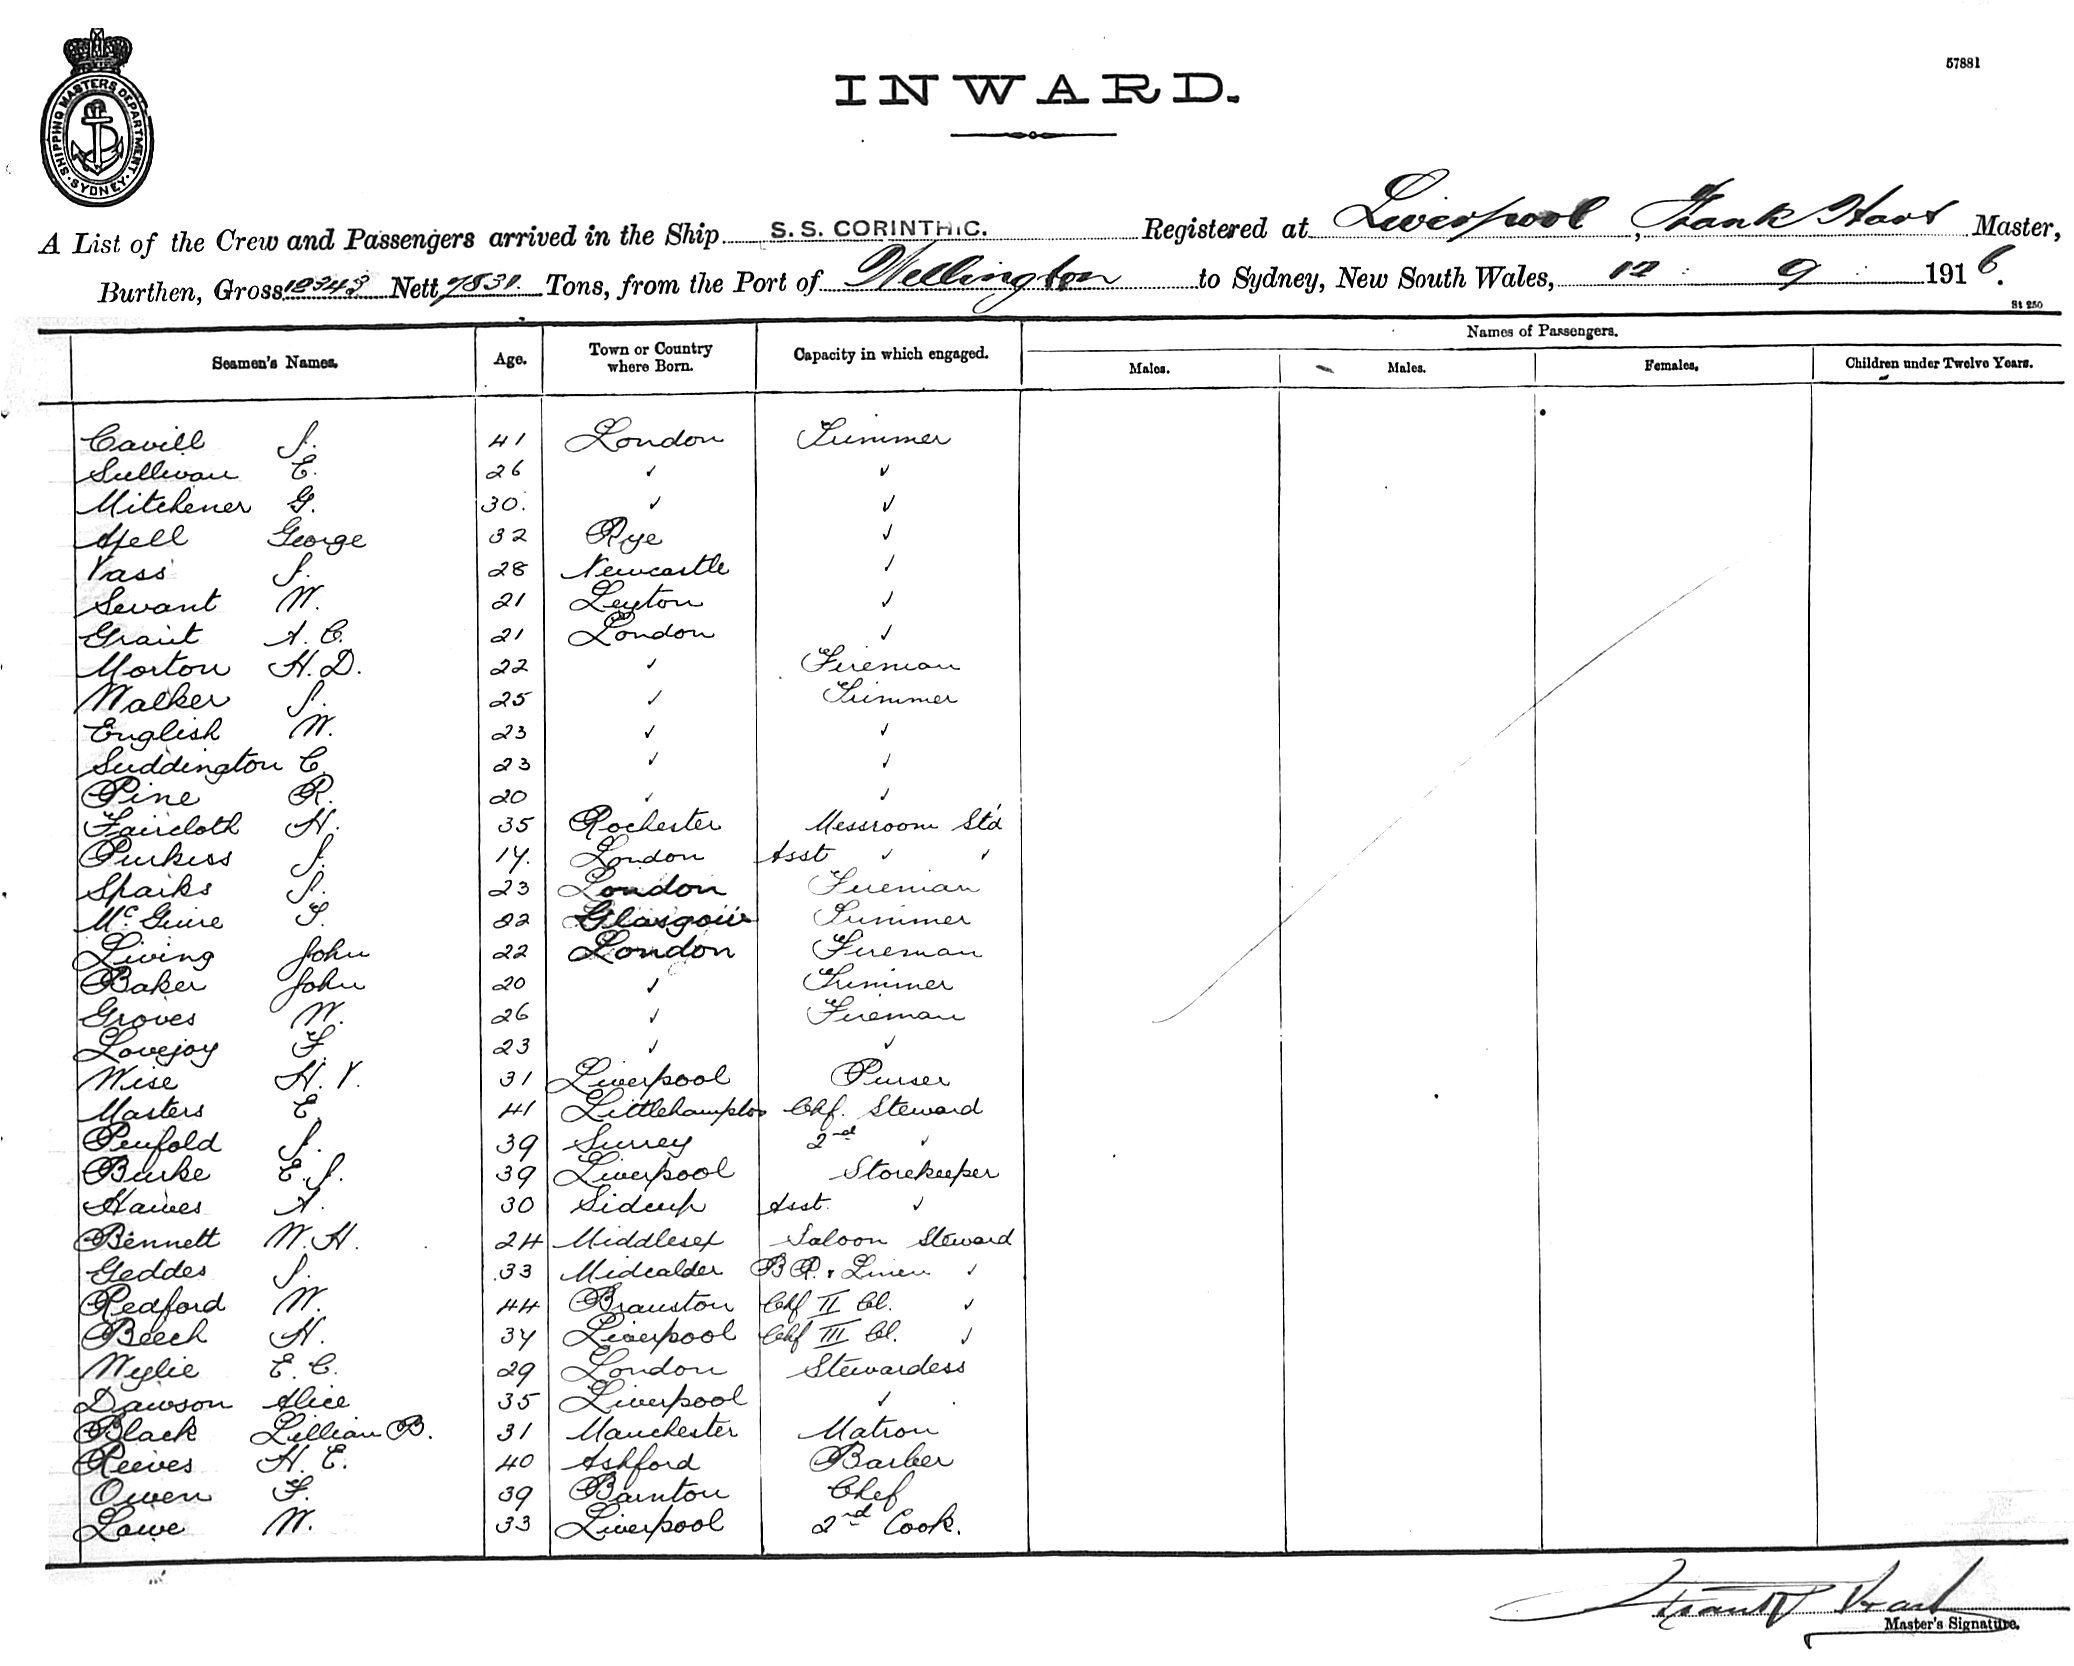 57881
INWARD.
SHIPPING MASTERS DEPARTMENT
SYDNEY
A List of the Crew and Passengers arrived in the Ship S. S. CORINTHIC. Registered at Liverpool, Frank Hart Master,
Burthen, Gross 12343 Nett 7831. Tons, from the Port of Wellington to Sydney, New South Wales, 12 : 9 : 1916.
St 250
Names of Passengers.
Seamen's Names. Age. Town or Country where Born. Capacity in which engaged. Males. Males. Females. Children under Twelve Years.
Cavill J. 41 London Trimmer
Sullivan E. 26 ✓ ✓
Mitchener G. 30. ✓ ✓
Apell George 32 Rye ✓
Vass J. 28 Newcastle ✓
Sevant W. 21 Leyton ✓
Grant A. C. 21 London ✓
Morton H. D. 22 ✓ Fireman
Walker J. 25 ✓ Trimmer
English W. 23 ✓ ✓
Suddington C. 23 ✓ ✓
Pine R. 20 ✓ ✓
Faircloth H. 35 Rochester Messroom Std
Purkiss J. 17. London Asst ✓ ✓
Sparks J. 23 London Fireman
McGuire T. 22 Glasgow Trimmer
Living John 22 London Fireman
Baker John 20 ✓ Trimmer
Groves W. 26 ✓ Fireman
Lovejoy F. 23 ✓ ✓
Wise H. V. 31 Liverpool Purser
Masters E. 41 Littlehampton Chf. Steward
Penfold J. 39 Surrey 2nd ✓
Burke E. J. 39 Liverpool Storekeeper
Hawes A. 30 Sidcup Asst. ✓
Bennett W. H. 24 Middlesex Saloon Steward
Geddes J. 33 Midcalder B R. & Linen ✓
Redford W. 44 Branston Chf II Cl. ✓
Beech H. 37 Liverpool Chf III Cl. ✓
Wylie E. C. 29 London Stewardess
Dawson Alice 35 Liverpool ✓
Black Lillian B. 31 Manchester Matron
Reeves H. E. 40 Ashford Barber
Owen F. 39 Barnton Chef
Lowe W. 33 Liverpool 2nd Cook.
Frank Hart
Master's Signature.